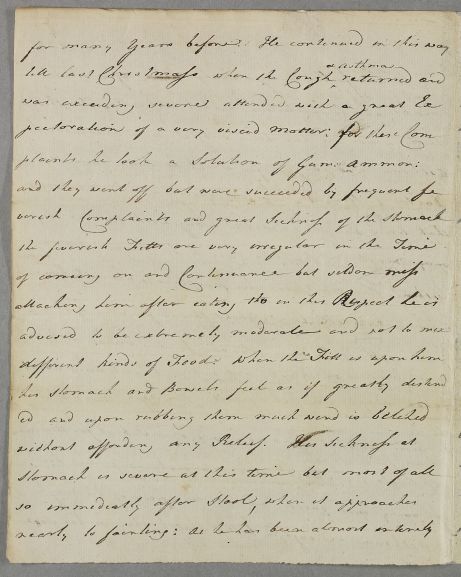 for many Years before: He continued in this way
till last Christmass when the Cough & asthma returned and
was exceeding severe attended with a great Ex
pectoration of a very viscid Matter: for these Com
plaints he took a Solution of Gum: Ammon:
and they went off but were succeeded by frequent fe
verish Complaints and great Sickness of the Stomach
the feverish Fitts are very irregular in the Time
of comeing on and Continuance but seldom miss
attacking him after eating tho in this Respect he is
advised to be extremely moderate and not to mix
different kinds of Food: when the Fitt is upon him
his Stomach and Bowels feel as if greatly distend
ed and upon rubbing them much wind is belched
without affording any Relief. His Sickness at
Stomach is severe at this time but most of all
so immediatly after Stool, when it approaches
nearly to fainting: As he has been almost entirely